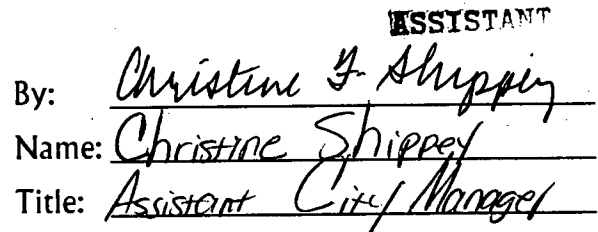 ASSISTANT
By: Christine F. Shippey
Name: Christine Shippey
Title: Assistant City Manager